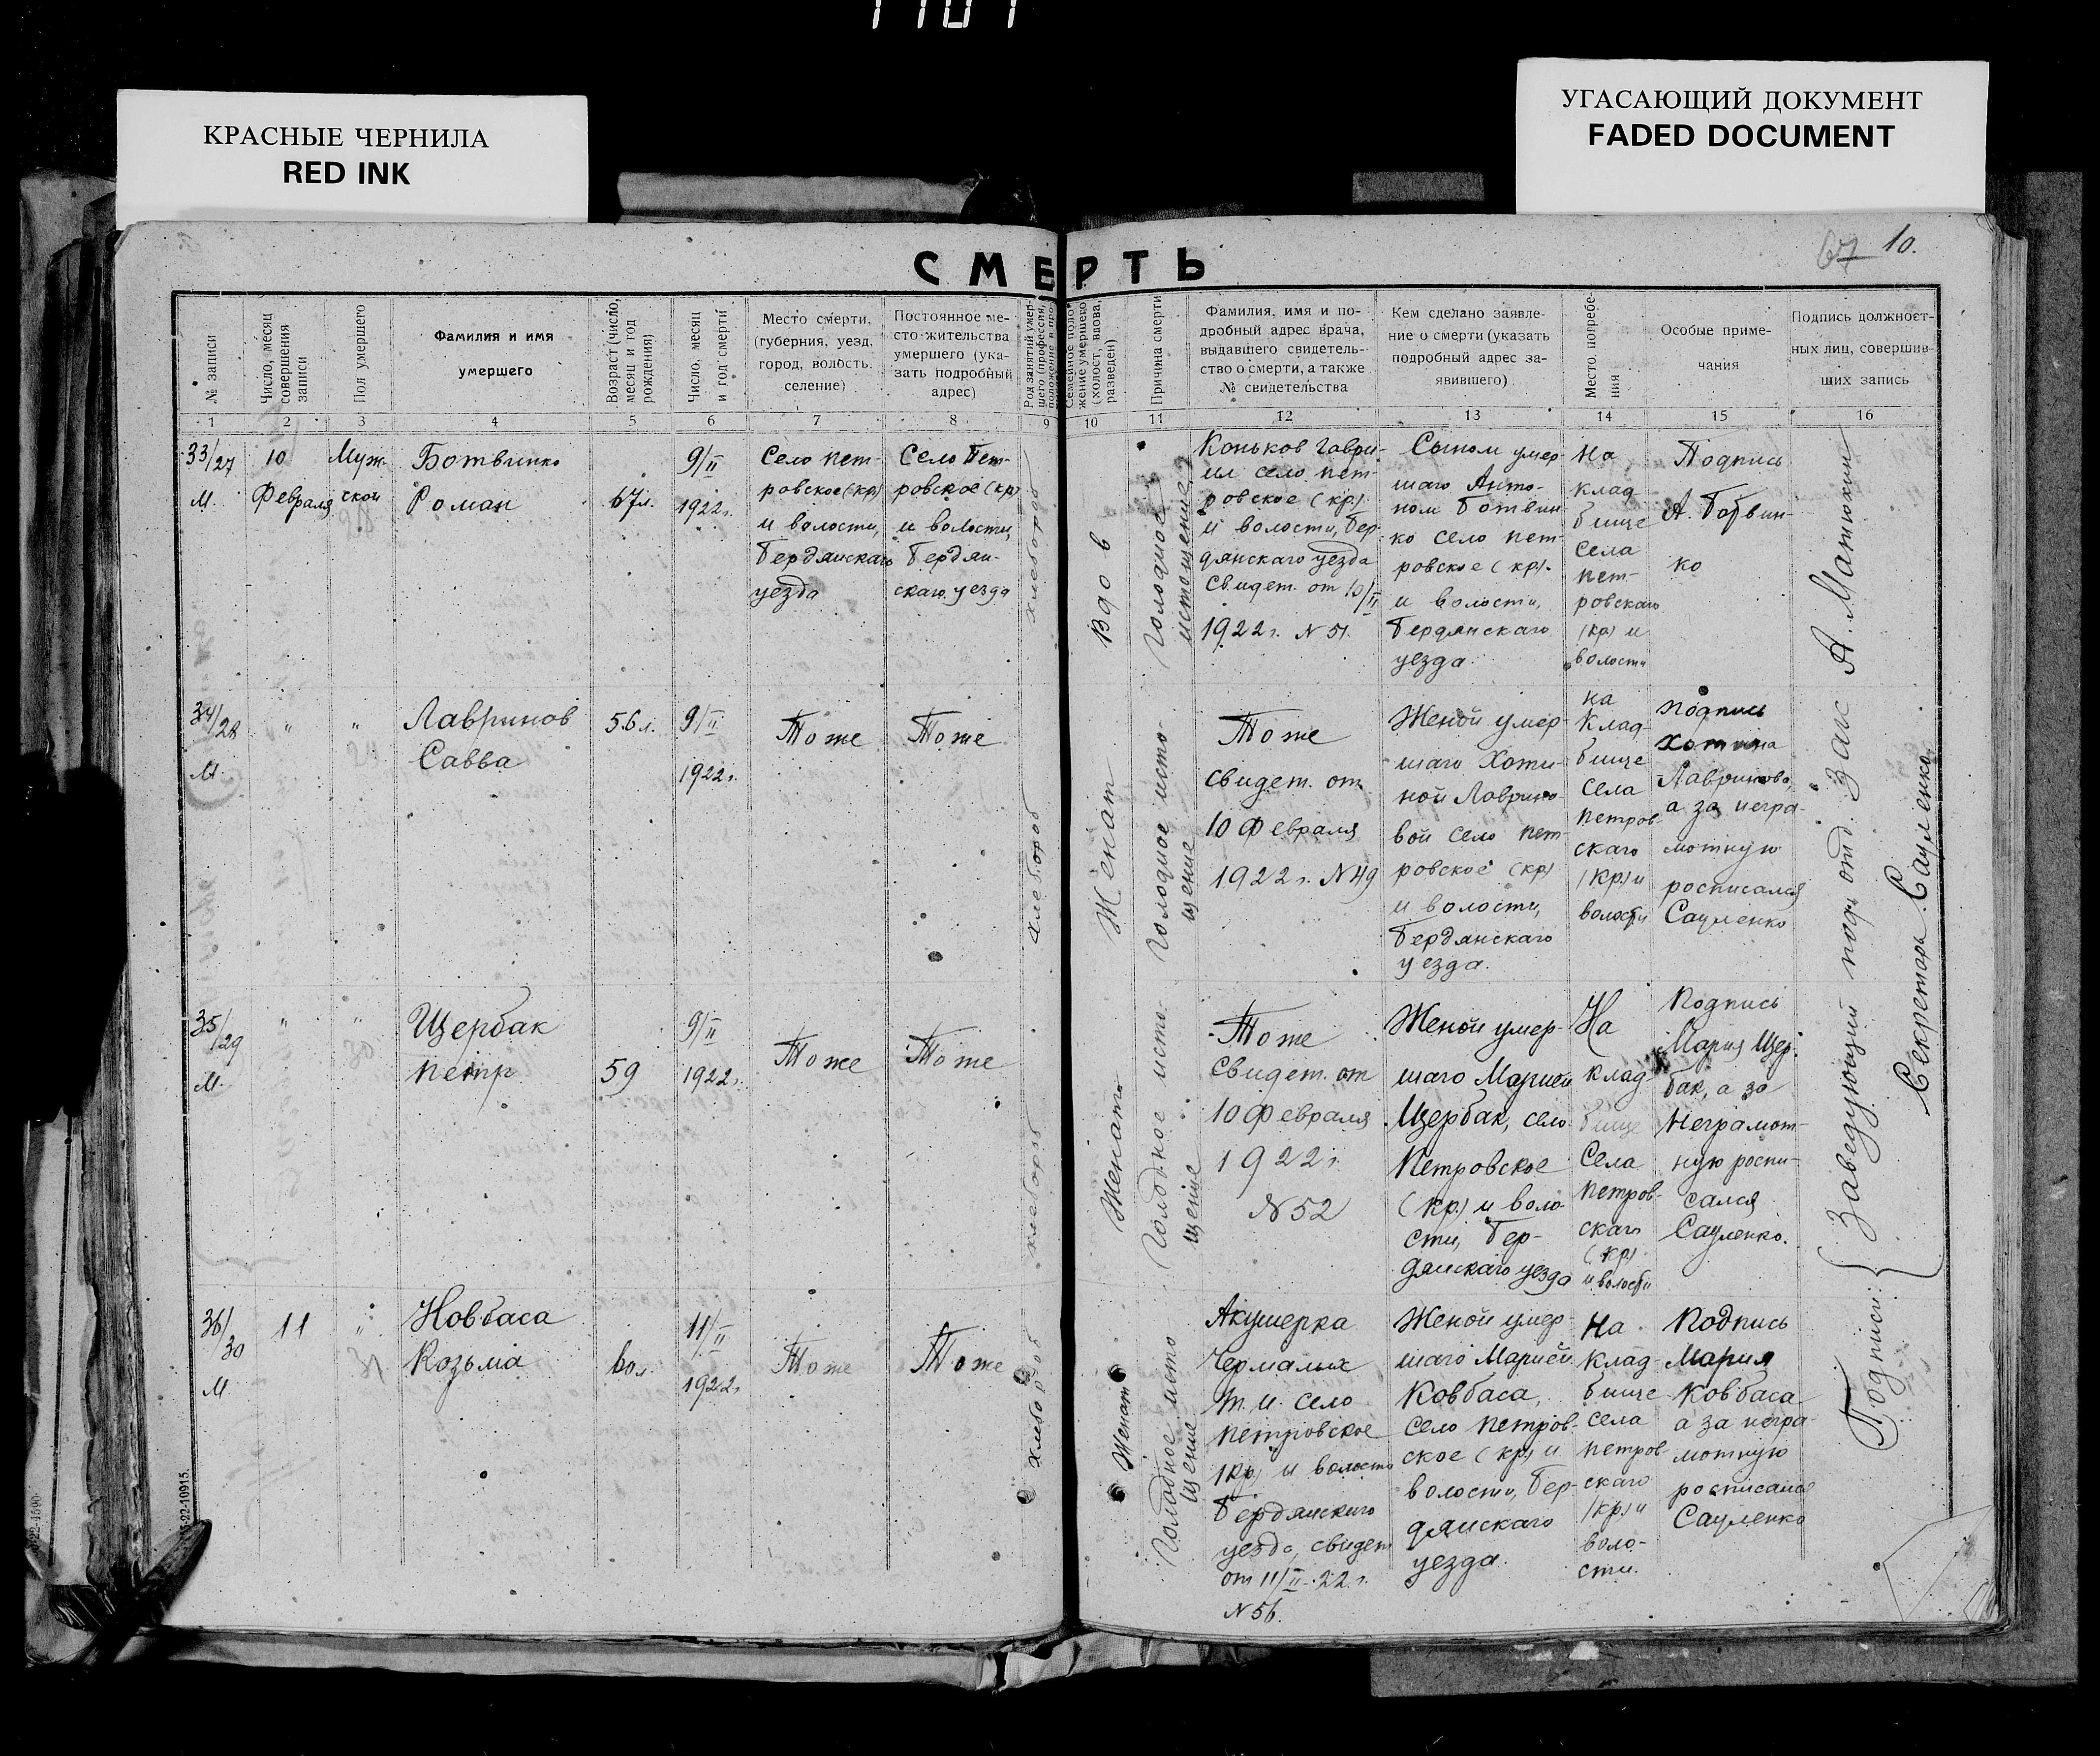 1107
КРАСНЫЕ ЧЕРНИЛА
RED INK
УГАСАЮЩИЙ ДОКУМЕНТ
FADED DOCUMENT
67 10.
СМЕРТЬ
№ записи
Число, месяц
совершения
записи
Пол умершего
Фамилия и имя
умершего
Возраст (число,
месяц и год
рождения)
Число, месяц
и год смерти
Место смерти,
(губерния, уезд,
город, волость,
селение)
Постоянное ме-
сто-жительства
умершего (ука-
зать подробный
адрес)
Род занятий умер-
шего (профессия,
Семейное поло-
жение умершего
(холост, вдова,
разведен)
Причина смерти
Фамилия, имя и по-
дробный адрес врача,
выдавшего свидетель-
ство о смерти, а также
№ свидетельства
Кем сделано заявле-
ние о смерти (указать
подробный адрес за-
явившего)
Место погребе-
ния
Особые приме-
чания
Подпись должност-
ных лиц, совершив-
ших запись
1 2 3 4 5 6 7 8 9 10 11 12 13 14 15 16
33/27
М.
10
Февраля
Муж-
ской
Ботвинко
Роман
67л.
9/II
1922г.
Село Пет-
ровское (кр)
и волости,
Бердянскаго
уезда
Село Пет-
ровское (кр)
и волости,
Бердян-
скаго уезда
хлебороб
Вдов
Голодное
истощение
Коньков Гаври-
ил село Пет-
ровское (кр)
и волости, Бер-
дянскаго уезда
Свидет. от 10/II
1922г. N 51.
Сыном умер-
шаго Анто-
ном Ботвин
ко село Пет-
ровское (кр).
и волости,
Бердянскаго
уезда.
На
клад-
бище
села
Пет-
ровскаго
(кр) и
волости
Подпись
А. Ботвин-
ко
34/28
М.
"
"
Лавринов
Савва
56л.
9/II
1922г.
Тоже
Тоже
хлебороб
Женат
Голодное исто-
щение
Тоже
свидет. от
10 Февраля
1922г. N49
Женой умер-
шаго Хоти-
ной Лаврино-
вой село Пет-
ровское (кр)
и волости,
Бердянскаго
уезда.
На
клад-
бище
села
Петров-
скаго
(кр) и
волости
Подпись
Хотина
Лавринова,
а за негра-
мотную
росписался
Сауленко
35/29
М.
"
"
Щербак
Петр
59
9/II
1922г.
Тоже
Тоже
хлебороб
Женат
Голодное исто-
щение
Тоже
Свидет. от
10 Февраля
1922г.
N52
Женой умер-
шаго Марией
Щербак, село
Петровское
(кр.) и воло-
сти, Бер-
дянскаго уезда
На
клад-
бище
Села
Петров-
скаго
(кр)
и волости
Подпись
Мария Щер-
бак, а за
Неграмот-
ную роспи-
сался
Сауленко.
36/30
М
11
"
Ковбаса
Козьма
60л.
11/II
1922г.
Тоже
Тоже
хлебороб
Женат
Голодное исто-
щение
Акушерка
Чермалых
т.и. село
Петровское
(кр) и волости
Бердянскаго
уезда, свидет
от 11/II-22г.
N56.
Женой умер-
шаго Марией
Ковбаса,
село Петров-
ское (кр) и
волости, Бер-
дянскаго
уезда.
На
клад-
бище
села
Петров-
скаго
(кр) и
воло-
сти.
Подпись
Мария
Ковбаса
а за негра-
мотную
росписался
Сауленко
Подписи: Заведующий под. отд. Загс А. Матюхин
Секретарь Сауленко